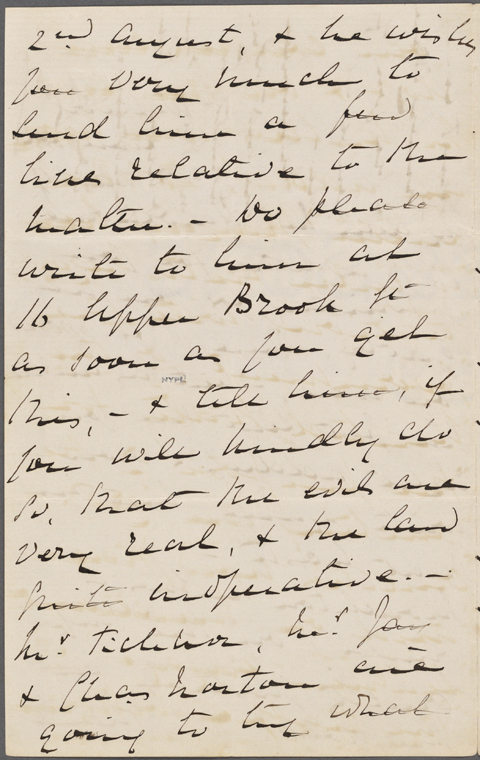 2nd August, & he wishes
you very much to
send him a few
lines relative to the
matter. – Do please
write to him at
16 Upper Brook St
as soon as you get
this, – & tell him, if
NYPL
you will kindly do
so, that the evils are
very real, & the law
quite inoperative. –
Mr. Ticknor, Mr. Jay
& Chas Norton are
going to try what